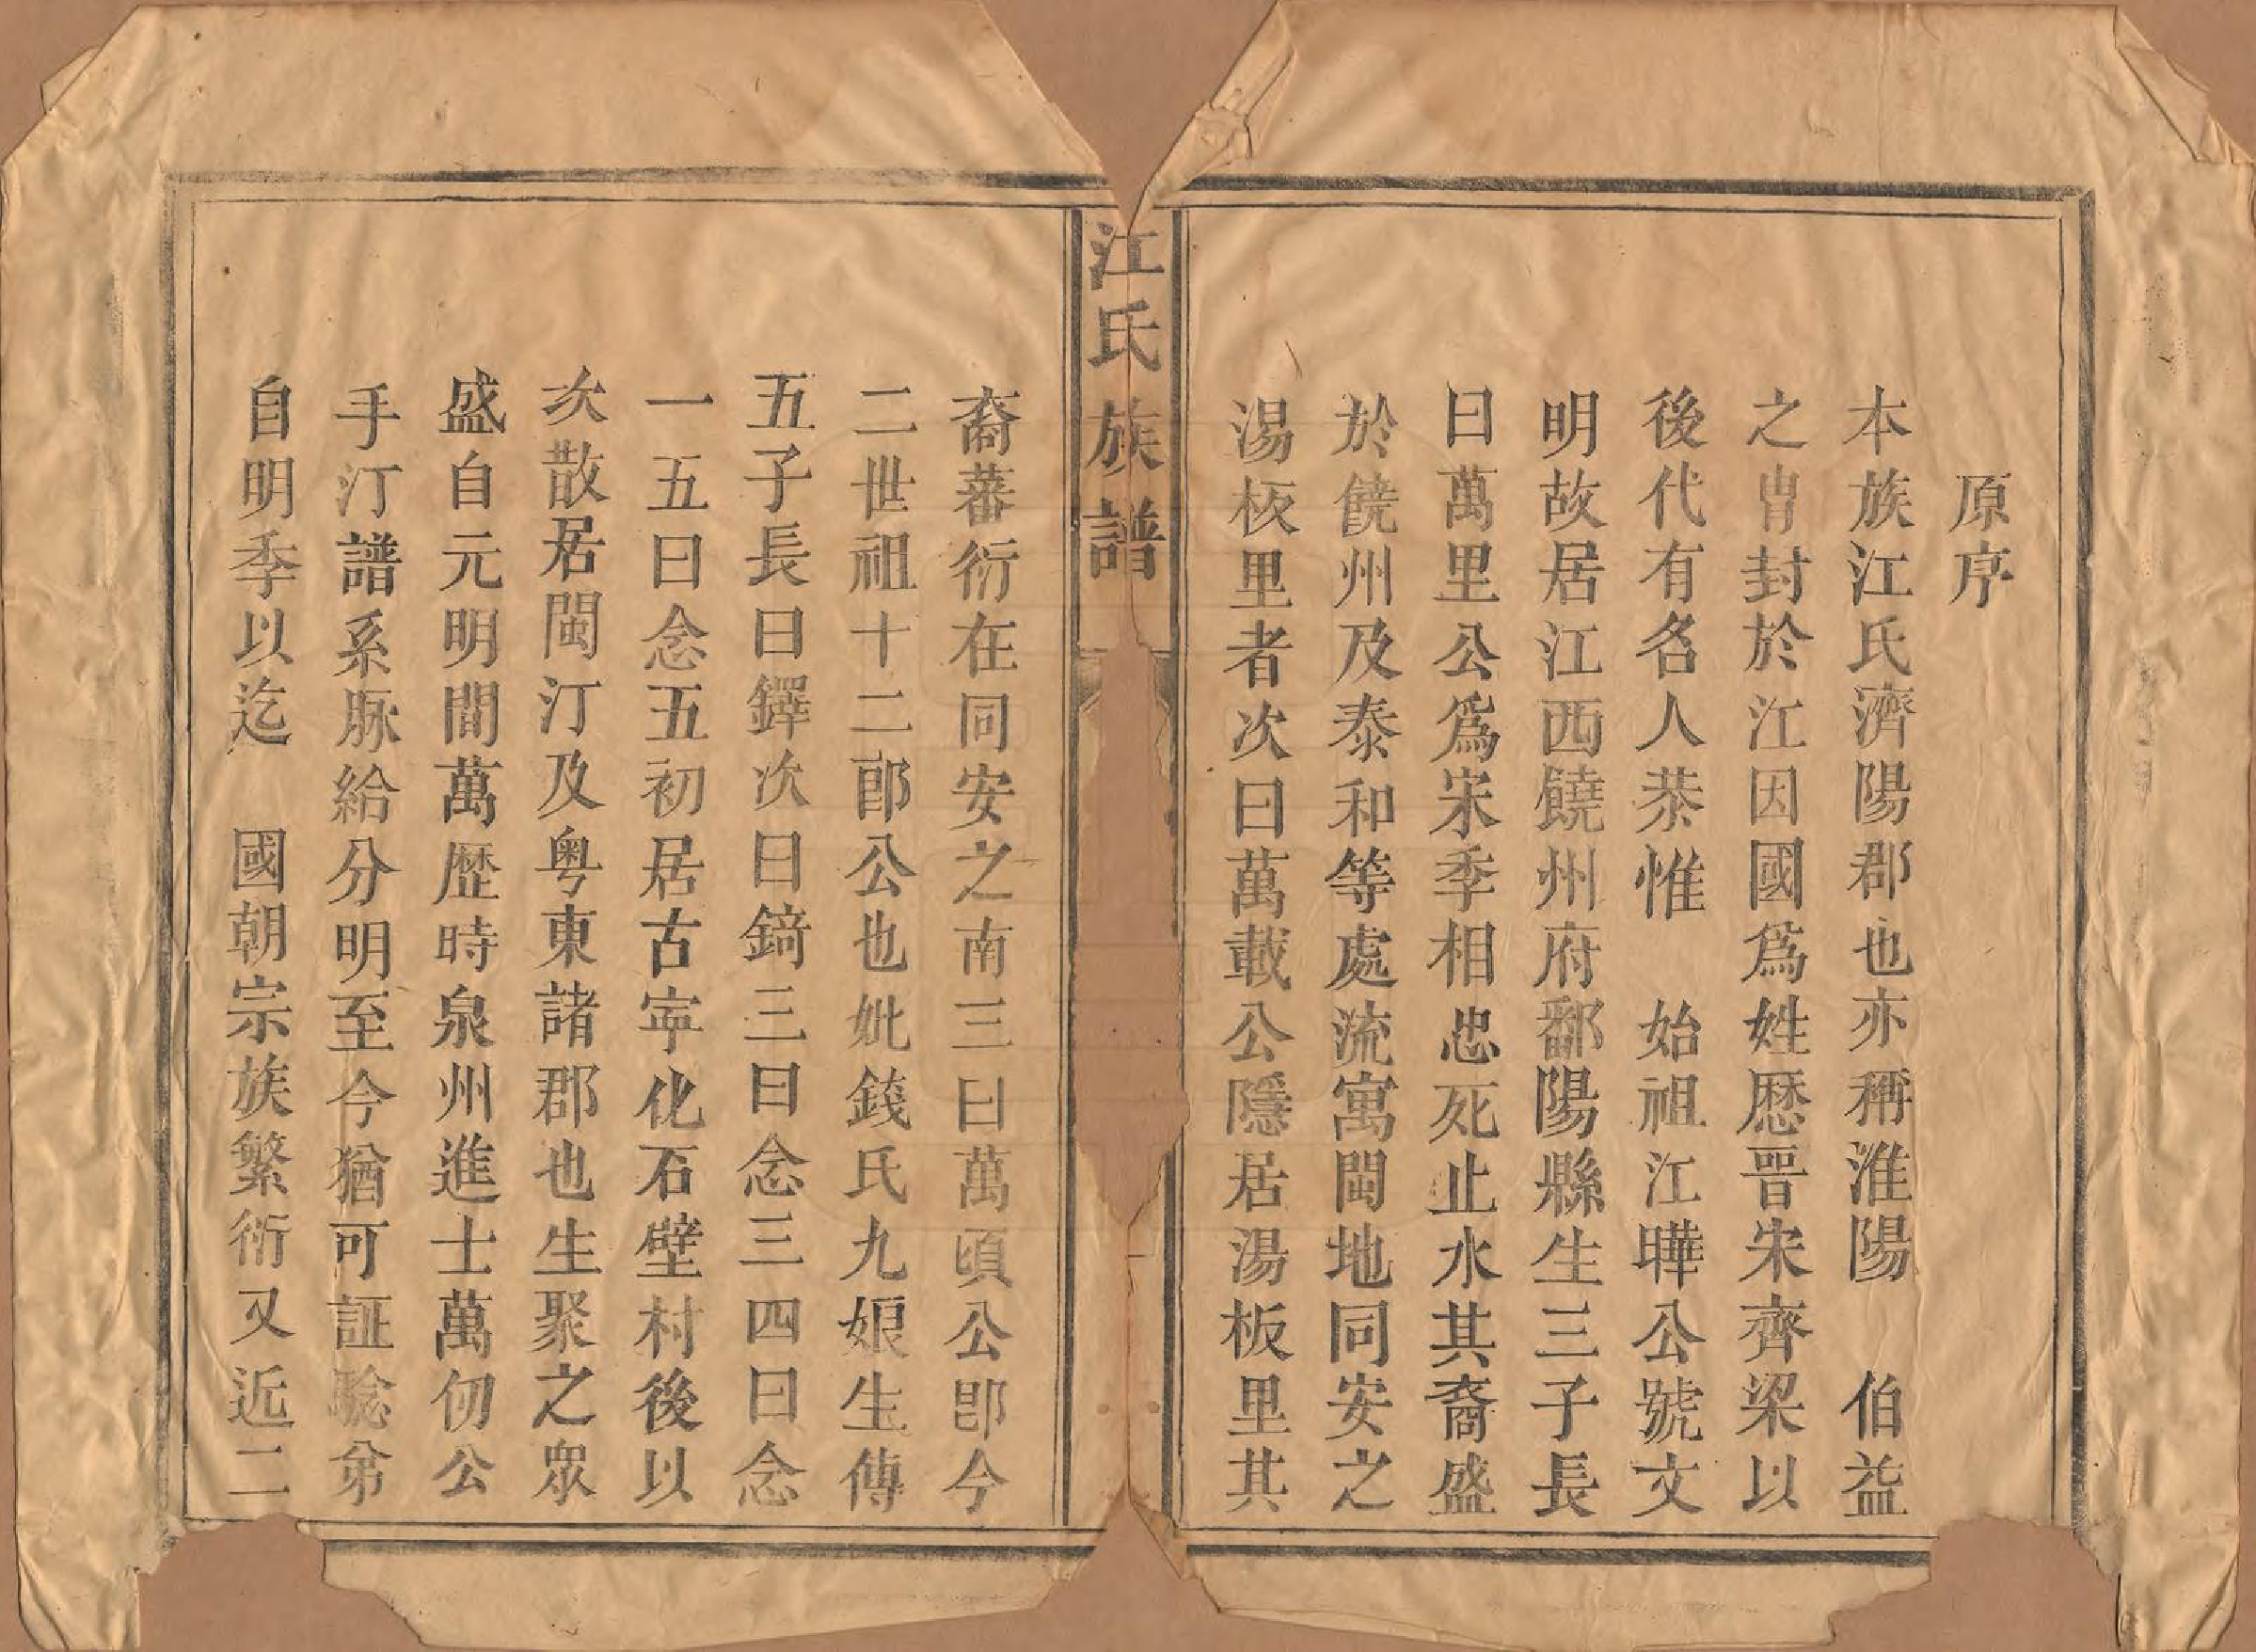 原序
本族江氏濟陽郡也亦稱淮陽　伯益
之胄封於江因國爲姓歷晉宋齊梁以
後代有名人恭惟　始祖江曄公號文
明故居江西饒州府鄱陽縣生三子長
曰萬里公爲宋季相忠死止水其裔盛
於饒州及泰和等處流寓閩地同安之
湯板里者次曰萬載公隱居湯板里其
江氏族譜
裔蕃衍在同安之南三曰萬頃公卽今
二世祖十二郎公也妣錢氏九娘生傳
五子長曰鐸次曰錡三曰念三四曰念
一五曰念五初居古寧化石壁村後以
次散居閩汀及粤東諸郡也生聚之眾
盛自元明間萬歴時泉州進士萬仞公
手汀譜系脉給分明至今猶可証驗第
自明季以迄　國朝宗族繁衍又近二